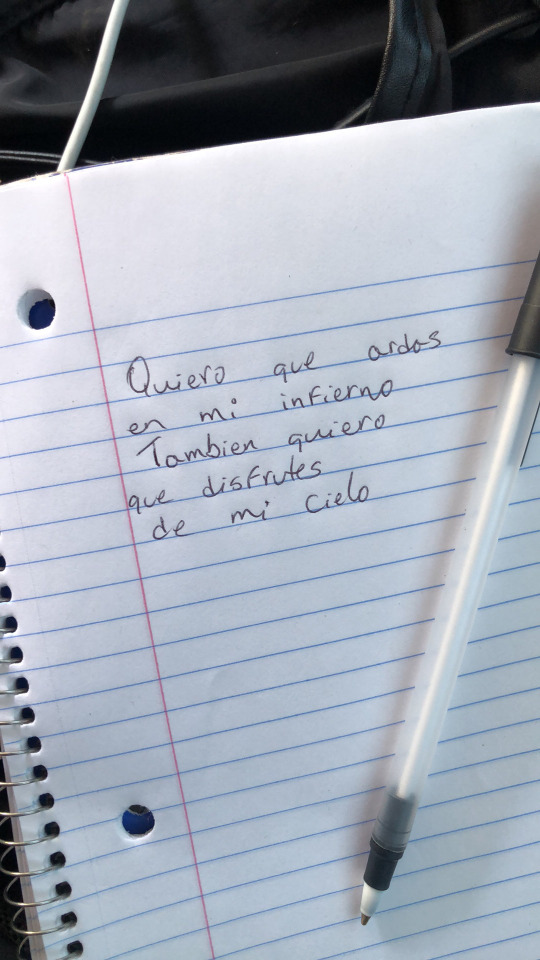 Quiero que ardas
en mi infierno
Tambien quiero
que disfrutes
de mi cielo